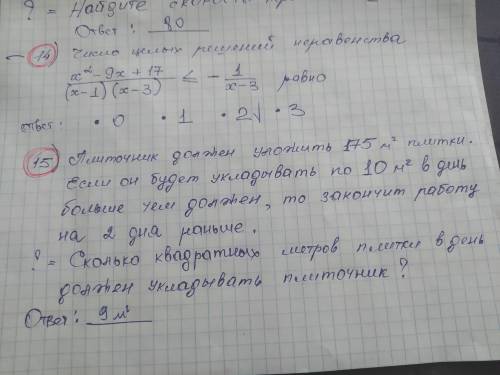 ? = Найдите
Ответ: 80
14 Число целых решений неравенства
x² - 9x + 17 / (x-1)(x-3) ≤ - 1 / x-3 равно
ответ. • 0 • 1 • 2√ • 3
15) Плиточник должен уложить 175 м² плитки.
Если он будет укладывать по 10 м² в день
больше чем должен, то закончит работу
на 2 дня раньше.
? = Сколько квадратных метров плитки в день
должен укладывать плиточник?
Ответ: 9 м²